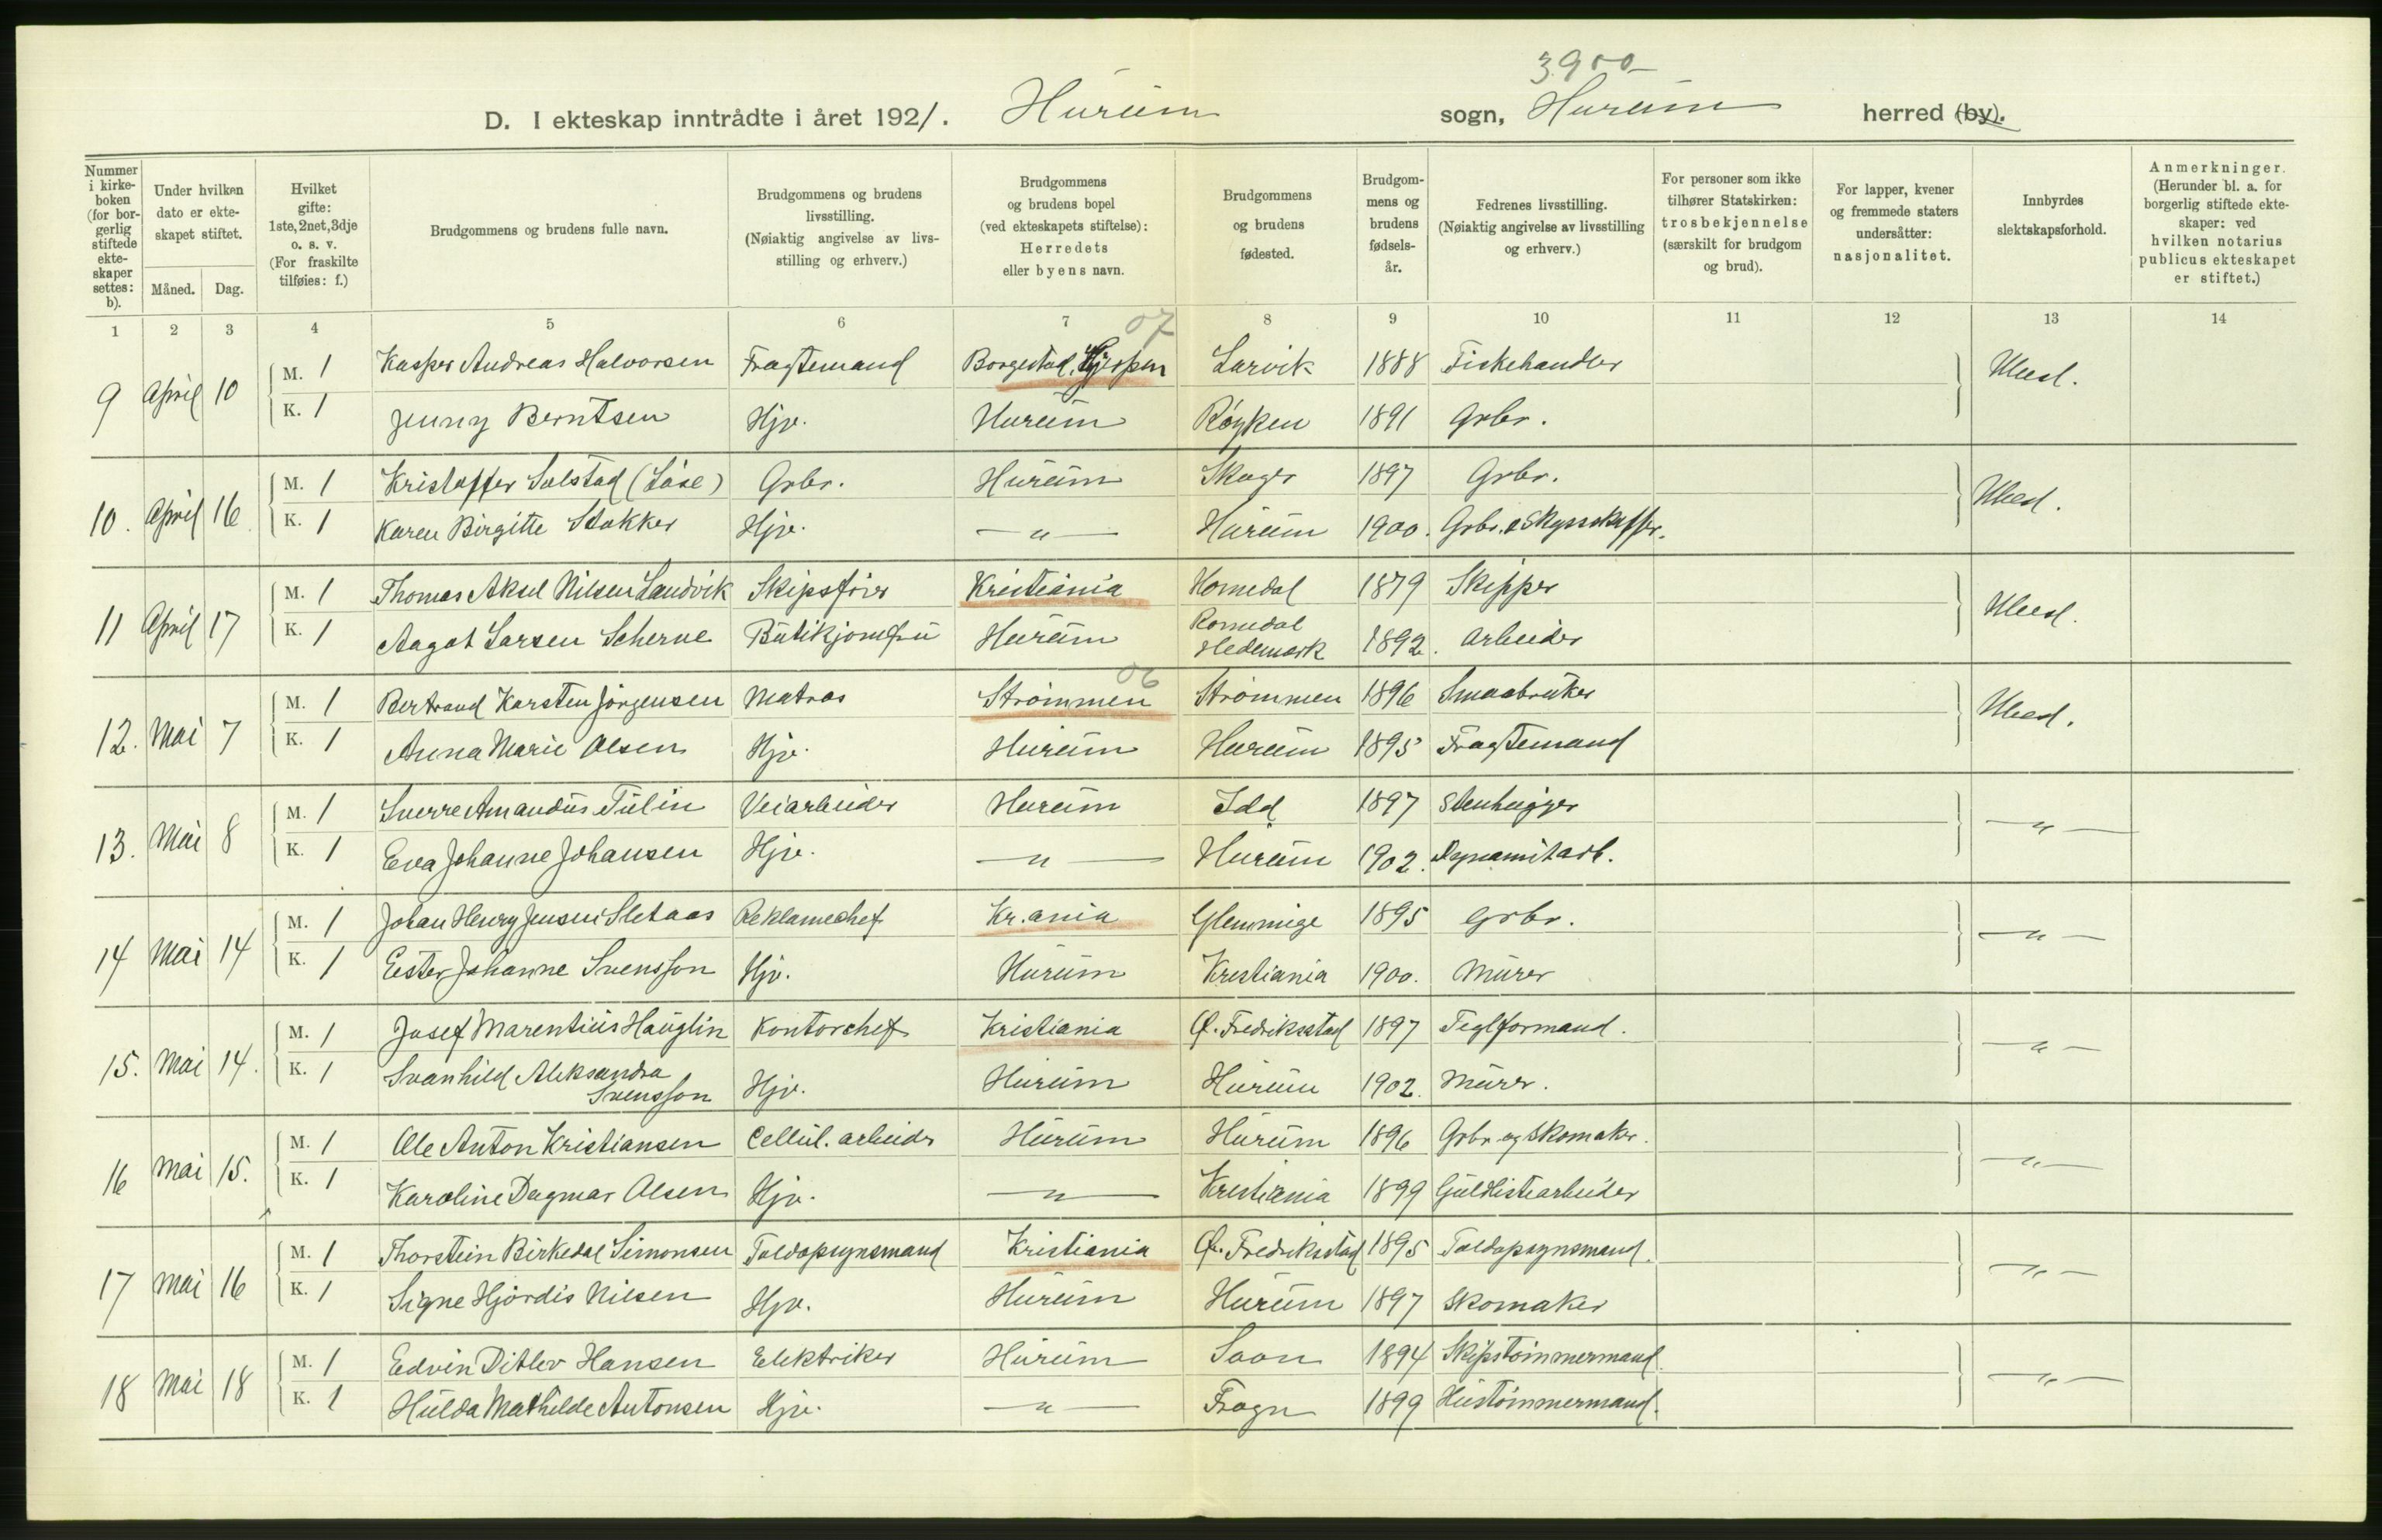 3900
D. I ekteskap inntrådte i året 1921. Hurum sogn, Hurum herred (by).
Nummer i kirkeboken (for borgerlig stiftede ekteskaper settes: b).
Under hvilken dato er ekteskapet stiftet.
Måned. Dag.
Hvilket gifte: 1ste, 2net, 3dje o. s. v. (For fraskilte tilføies: f.)
Brudgommens og brudens fulle navn.
Brudgommens og brudens livsstilling. (Nøiaktig angivelse av livsstilling og erhverv.)
Brudgommens og brudens bopel (ved ekteskapets stiftelse): Herredets eller byens navn.
Brudgommens og brudens fødested.
Brudgommens og brudens fødselsår.
Fedrenes livsstilling. (Nøiaktig angivelse av livsstilling og erhverv.)
For personer som ikke tilhører Statskirken: trosbekjennelse (særskilt for brudgom og brud).
For lapper, kvener og fremmede staters undersåtter: nasjonalitet.
Innbyrdes slektskapsforhold.
Anmerkninger. (Herunder bl. a. for borgerlig stiftede ekteskaper: ved hvilken notarius publicus ekteskapet er stiftet.)
1 2 3 4 5 6 7 8 9 10 11 12 13 14
07
9 April 10 M. 1 Kasper Andreas Halvorsen Fragtemand Borgestad, Gjerpen Larvik 1888 Fiskehandler Ubesl.
K. 1 Jenny Berntsen Hjv. Hurum Røyken 1891 Grbr.
10. April 16 M. 1 Kristoffer Solstad Grbr. Hurum Skoger 1897 Grbr. Ubesl.
K. 1 Karen Birgitte Stokker Hjv. — " — Hurum 1900. Grbr. o Skysskaffer.
11 April 17 M. 1 Thomas Aksel Nilsen Landvik Skipsfører Kristiania Homedal 1879 Skipper Ubesl.
K. 1 Aagot Larsen Scherne Butikjomfru Hurum Romedal Hedemark 1892. Arbeider
06
12. Mai 7 M. 1 Bertrand Karsten Jørgensen Matros Strømmen Strømmen 1896 Smaabruker Ubesl.
K. 1 Anna Marie Olsen Hjv. Hurum Hurum 1895 Fragtemand
13. Mai 8 M. 1 Sverre Amandus Tulin Veiarbeider Hurum Idd 1897 Stenhugger — " —
K. 1 Eva Johanne Johansen Hjv. — " — Hurum 1902. Dynamitarb.
14 Mai 14 M. 1 Johan Henry Jensen Sletaas Reklamechef Kr.ania Glemminge 1895 Grbr. — " —
K. 1 Ester Johanne Svensson Hjv. Hurum Kristiania 1900. Murer
15. Mai 14. M. 1 Josef Marentius Hauglin Kontorchef Kristiania Ø. Fredriksstad 1897 Teglformand. — " —
K. 1 Svanhild Aleksandra Svensson Hjv. Hurum Hurum 1902. Murer.
16 Mai 15. M. 1 Ole Anton Kristiansen Cellul. arbeider Hurum Hurum 1896 Grbr og Skomaker. — " —
K. 1 Karoline Dagmar Olsen Hjv. — " — Kristiania 1899 Guldlistearbeider
17 Mai 16 M. 1 Thorstein Birkedal Simonsen Toldopsynsmand Kristiania Ø. Fredriksstad 1895 Toldopsynsmand. — " —
K. 1 Signe Hjørdis Nilsen Hjv. Hurum Hurum 1897 Skomaker
18 Mai 18 M. 1 Edvin Ditlev Hansen Elektriker Hurum Soon 1894 Skipstømmermand. — " —
K. 1 Hulda Mathilde Antonsen Hjv. — " — Frogn 1899 Hustømmermand.